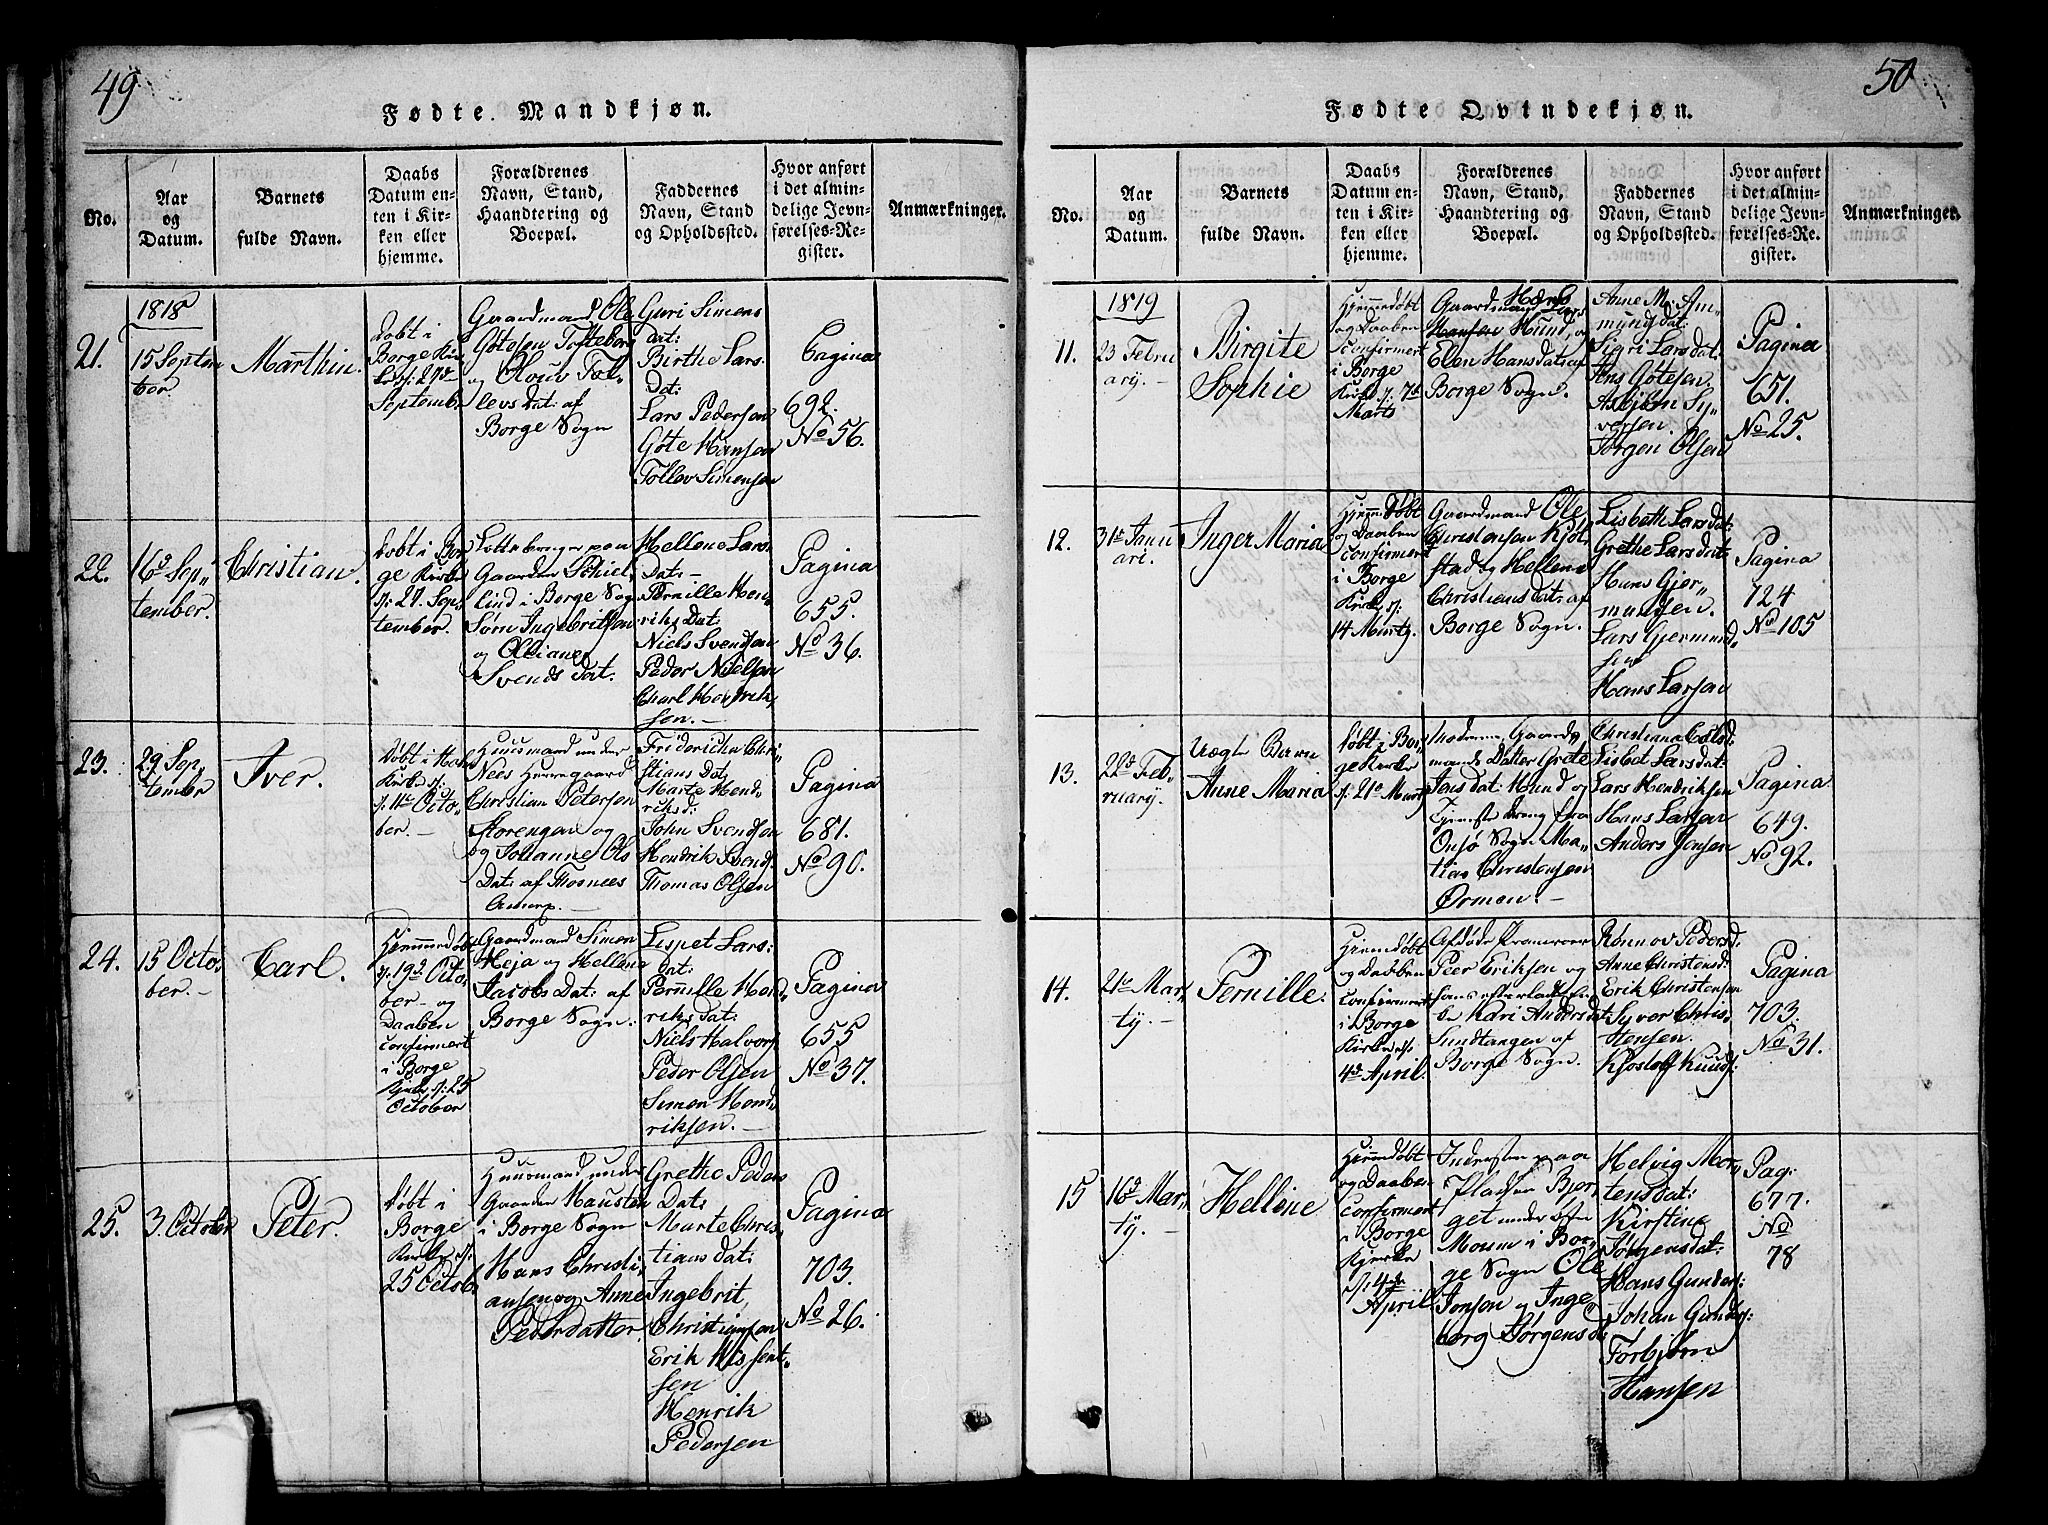 49
Fødte Mandkjøn.
No.
Aar
og
Datum.
Barnets
fulde Navn.
Daabs
Datum en-
ten i Kir-
ken eller
hjemme.
Forældrenes
Navn, Stand,
Haandtering og
Boepæl.
Faddernes
Navn, Stand
og Opholdssted.
Hvor anført
i det almin-
delige Jevn-
førelses-Re-
gister.
Anmærkninger.
1818
21.
15 Septem
ber
Marthin
Døbt i
Borge Kir
27de
September
Gaardmand Ole
Götesen
og
levs Dat: af
Borge Sogn
Guri Simens
Dat:
Birthe Lars
Dat:
Lars Pedersen
Göte Hansen
Tollev Simensen
Pagina
692.
No 56.
22.
16de Sep„
tember.
Christian.
Døbt i Bor
ge Kirke
d: 27. Sep,
tember.
Gaarden
lind i Borge Sogn
Sørn Ingebritsen
og Olliane
Svends Dat.
Hellene Lars
Dat:
Pernille Hen„
riks Dat:
Niels Svendsen
Peder Nielsen
Carl Hendrik
sen.
Pagina
655.
No 36.
23.
29 Sep,
tember
Iver.
Døbt i
Kirke d:
d: 11te Octo„
ber.
Huusmand under
Nees Herregaard
Christian Petersen
Storengen og
og Johanne Ols
Dat: af Thosnees
Annex.
Fridericha Chri„
stians Dat
Marte Hend„
riksd:
John Svendsen
Hendrik Svends.
Thomas Olsen
Pagina
681.
No 90.
24.
15 Octo„
ber.
Carl.
Hjemmedøbt
d: 19de Octo„
ber og
Daaben
confirmert
i Borge
Kirke d: 25
October
Gaardmand Simen
Heja og Hellene
Jacobs Dat: af
Borge Sogn.
Lispet Lars:
Dat:
Pernille Hend„
riks Dat:
Niels Halvors
Peder Olsen
Simen Hend„
riksen.
Pagina
655
No 37.
25.
3. October
Peter.
Døbt i
Borge
Kirke d:
25 Octob.
Huusmand under
Gaarden Hausten
i Borge Sogn
Hans Christi„
ansen og Anne
Pedersdatter.
Grethe Peders
Dat:
Marte Chris„
tians dat:
Ingebrit
Christiansen
Erik Nissent„
sen
Henrik
Pedersen
Pagina
703.
No 26.
50
Fødte Qvindekjøn.
No.
Aar
og
Datum.
Barnets
fulde Navn.
Daabs
Datum en-
ten i Kir-
ken eller
hjemme.
Forældrenes
Navn, Stand,
Haandtering og
Boepæl.
Faddernes
Navn, Stand
og Opholdssted.
Hvor anført
i det almin-
delige Jevn-
førelses-Re-
gister.
Anmærkninger.
1819
11.
23 Febru
arÿ.
Birgite
Sophie
Hjemmedøbt
og Daaben
confirmert
i Borge
Kirke d: 7de
Marts
Gaardsmand
Hansen Hund, og
Elen Hansdat: af
Borge Sogn.
Anne M: Am„
munds dat:
Sigri Lars dat.
Jens Götesen
Asbjörn Sy„
versen.
Jörgen Olsen
Pagina
651.
No 25.
12.
31te Janu
ari.
Inger Maria
Hjemmedøbt
og Daaben
confirmert
i Borge
Kirke d:
14 Martÿ.
Gaardmand Ole
Christensen Kjöl„
stad og Hellene
Christians dat: af
Borge Sogn.
Lisbeth Lars dat:
Grethe Lars dat:
Hans Gjer„
mundsen.
Lars Gjermund„
sen
Hans Larsen
Pagina
724
No 105
13.
22de Feb„
ruarÿ.
Uægte Barn
Anne Maria
Døbt i Bor„
ge Kirke
d: 21de Martÿ
Moderen Gaard„
mands Datter Grete
Jens Dat: Hund og
Tjeneste Dreng fra
Onsö Sogn Ma„
tias Christensen
Ørmen.
Christiana
Lisbet Lars dat:
Lars Hendriksen
Hans Larsen
Anders Jensen
Pagina
649.
No 92.
14.
21de Mar„
tÿ.
Pernille.
Hjemmedøbt
og Daaben
confirmert
i Borge
Kirke d:
4de April.
Afdøde
Peer Eriksen og
hans efterladte En„
ke Kari Andersdat:
Sundtangen af
Borge Sogn.
Rönnov Pedersd.
Anne Christensd:
Erik Christensen
Syver Chris„
tensen.
Kjöstolf Knuds:
Pagina
703.
No 31.
15
16de Mar„
tÿ.
Hellene
Hjemmedøbt
og Daaben
confirmert
i Borge
Kjerke
d: 4de
April
Inderster paa
Pladsen Bjer
get under östre
Moum i Bor„
ge Sogn Ole
Jonsen og Inge
borg Jörgensd:
Helvig Mor„
tensdat:
Kirstine
Jörgensdat:
Hans Gunders:
Johan Gunders:
Torbjörn
Hansen
Pag:
677.
No
78